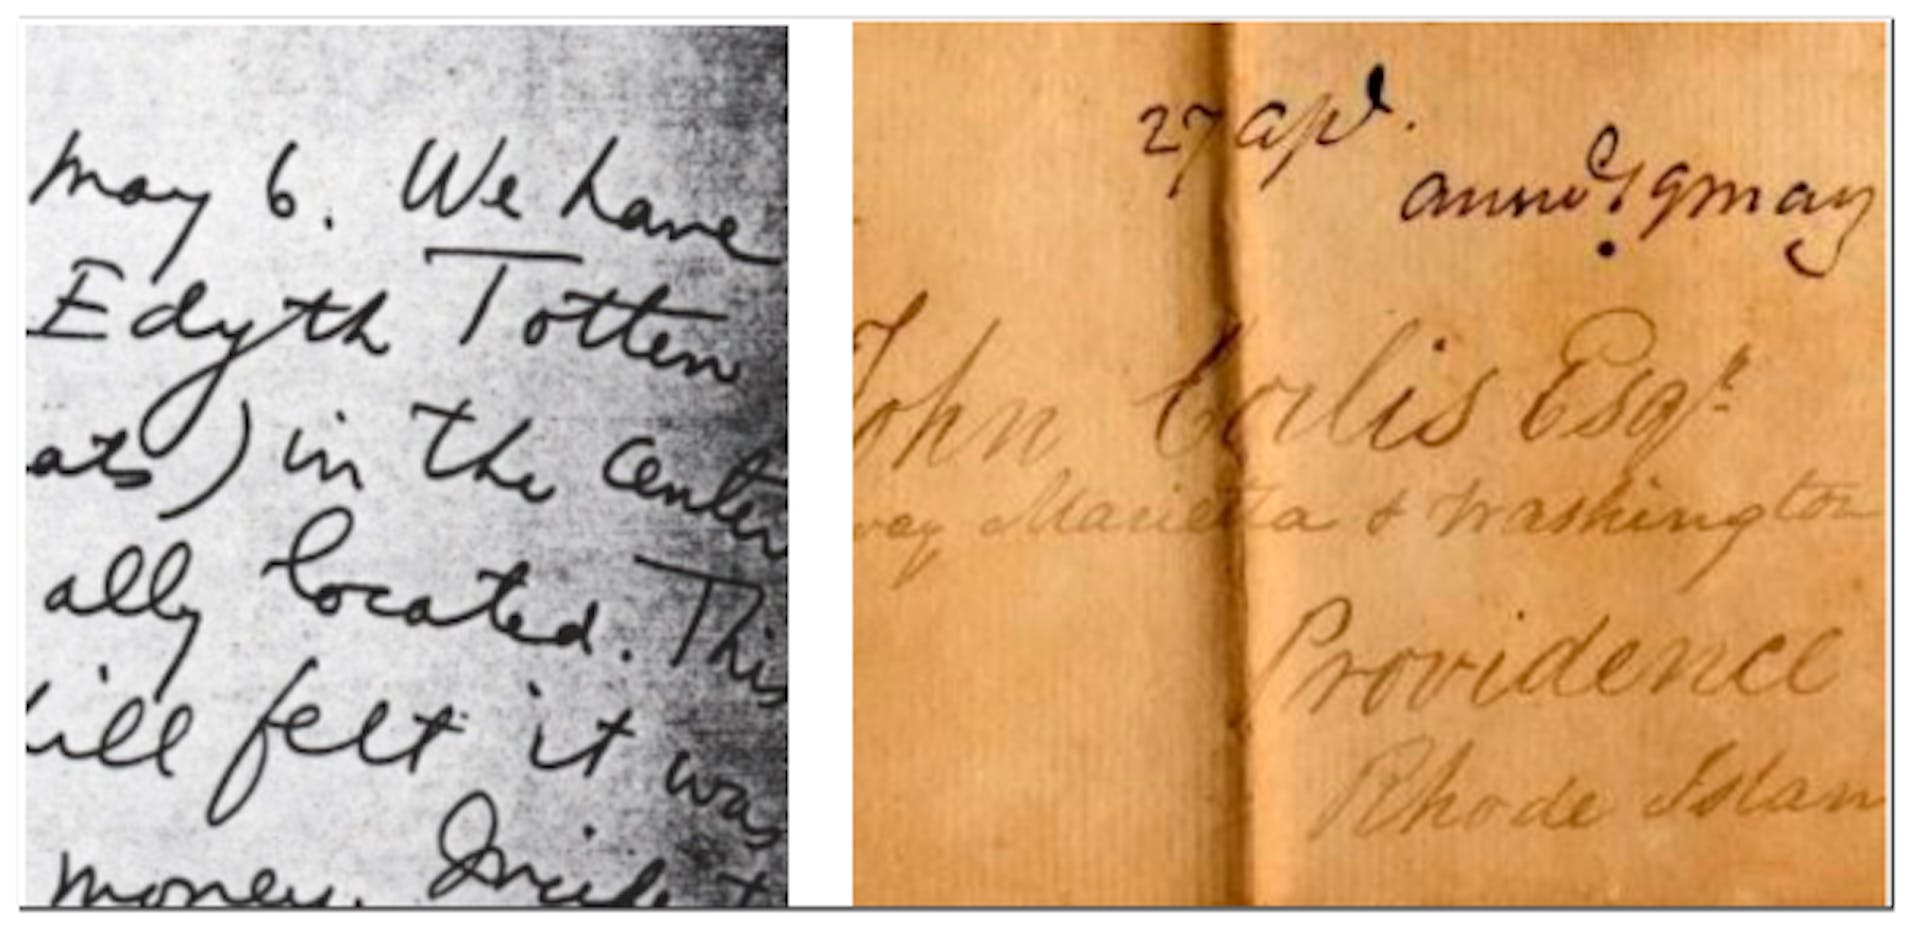 may 6. We have
Edyth Totten
ats) in the center
ally located. This
ill felt it was
money.
27 apl.
answd 9 may
John Corlis Esqr.
Marietta & Washington
Providence
Rhode Islan